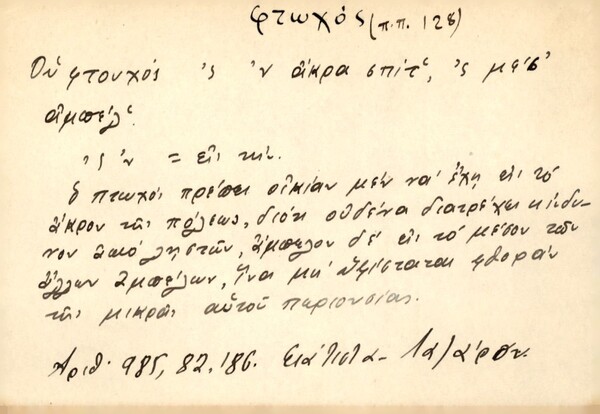 φτωχός (π.π. 128)
Οὑ φτουχός 'ς 'ν ἄκρα σπίτ', 'ς μέσ'
ἀμπέλ'.
'ς 'ν = εἰς τήν.
ὁ πτωχός πρέπει οἰκίαν μέν νά ἔχῃ εἰς τό
ἄκρον τῆς πόλεως, διότι οὐδένα διατρέχει κίνδυ-
νον ἀπό ληστῶν, ἄμπελον δέ εἰς τό μέσον τῶν
ἄλλων ἀμπέλων, ἵνα μή ὑφίσταται φθοράν
τῆς μικρᾶς αὐτοῦ περιουσίας.
Ἀριθ. 985, 82, 186. Σιάτιστα-